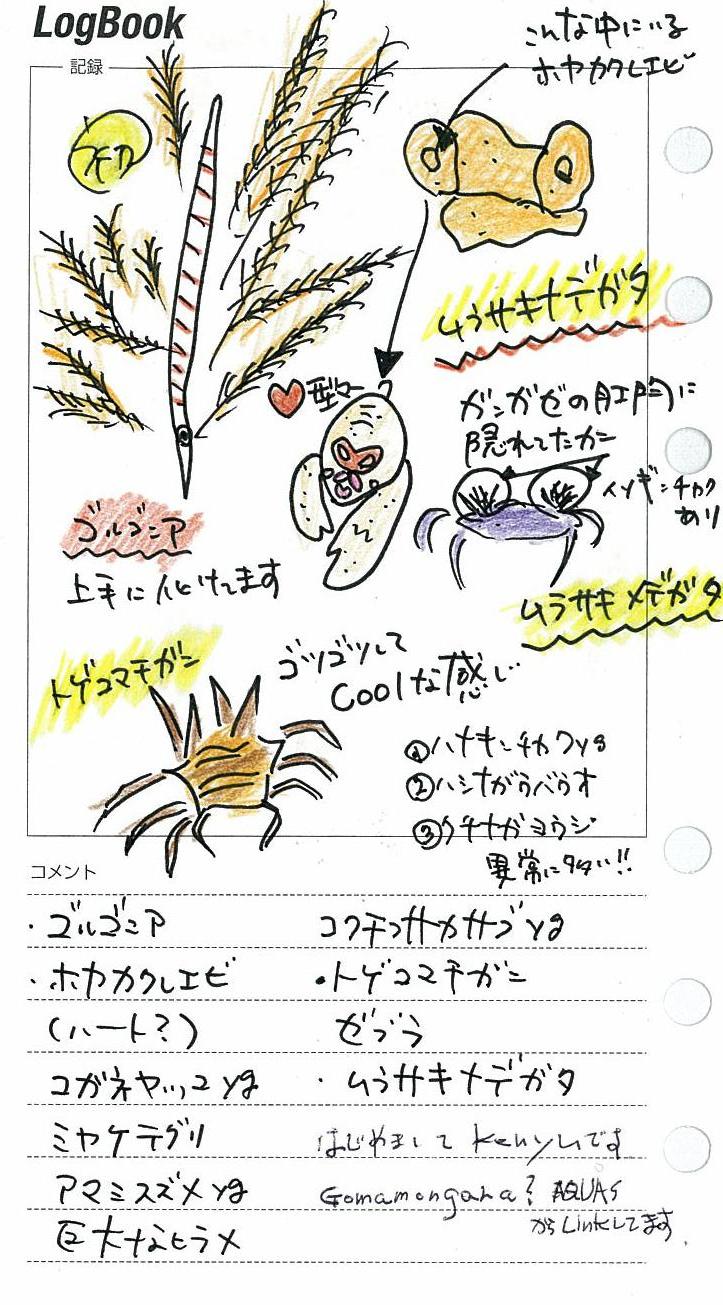 LogBook
記録
こんな中にいる
ホヤカクレエビ
ムラサキナデガタ
型マー
ガンガゼの肛門に
隠れてたカニ
イソギンチャク
あり
ゴルゴニア
上手に化けてます
ムラサキメデガタ
トゲコマチガニ
ゴツゴツして
coolな感じ
①ハナギンチャクyg
②ハシナガウバウオ
③クチナガヨウジ
異常に多い!!
コメント
・ゴルゴニア コクテンサザナミyg
・ホヤカクレエビ ・トゲコマチガニ
(ハート?) ゼブラ
コガネヤッコyg ・ムラサキナデガタ
ミヤケテグリ はじめまして kenyuです
アマミスズメyg Gomamongara? AQUAS
からLinkしてます.
巨大なヒラメ